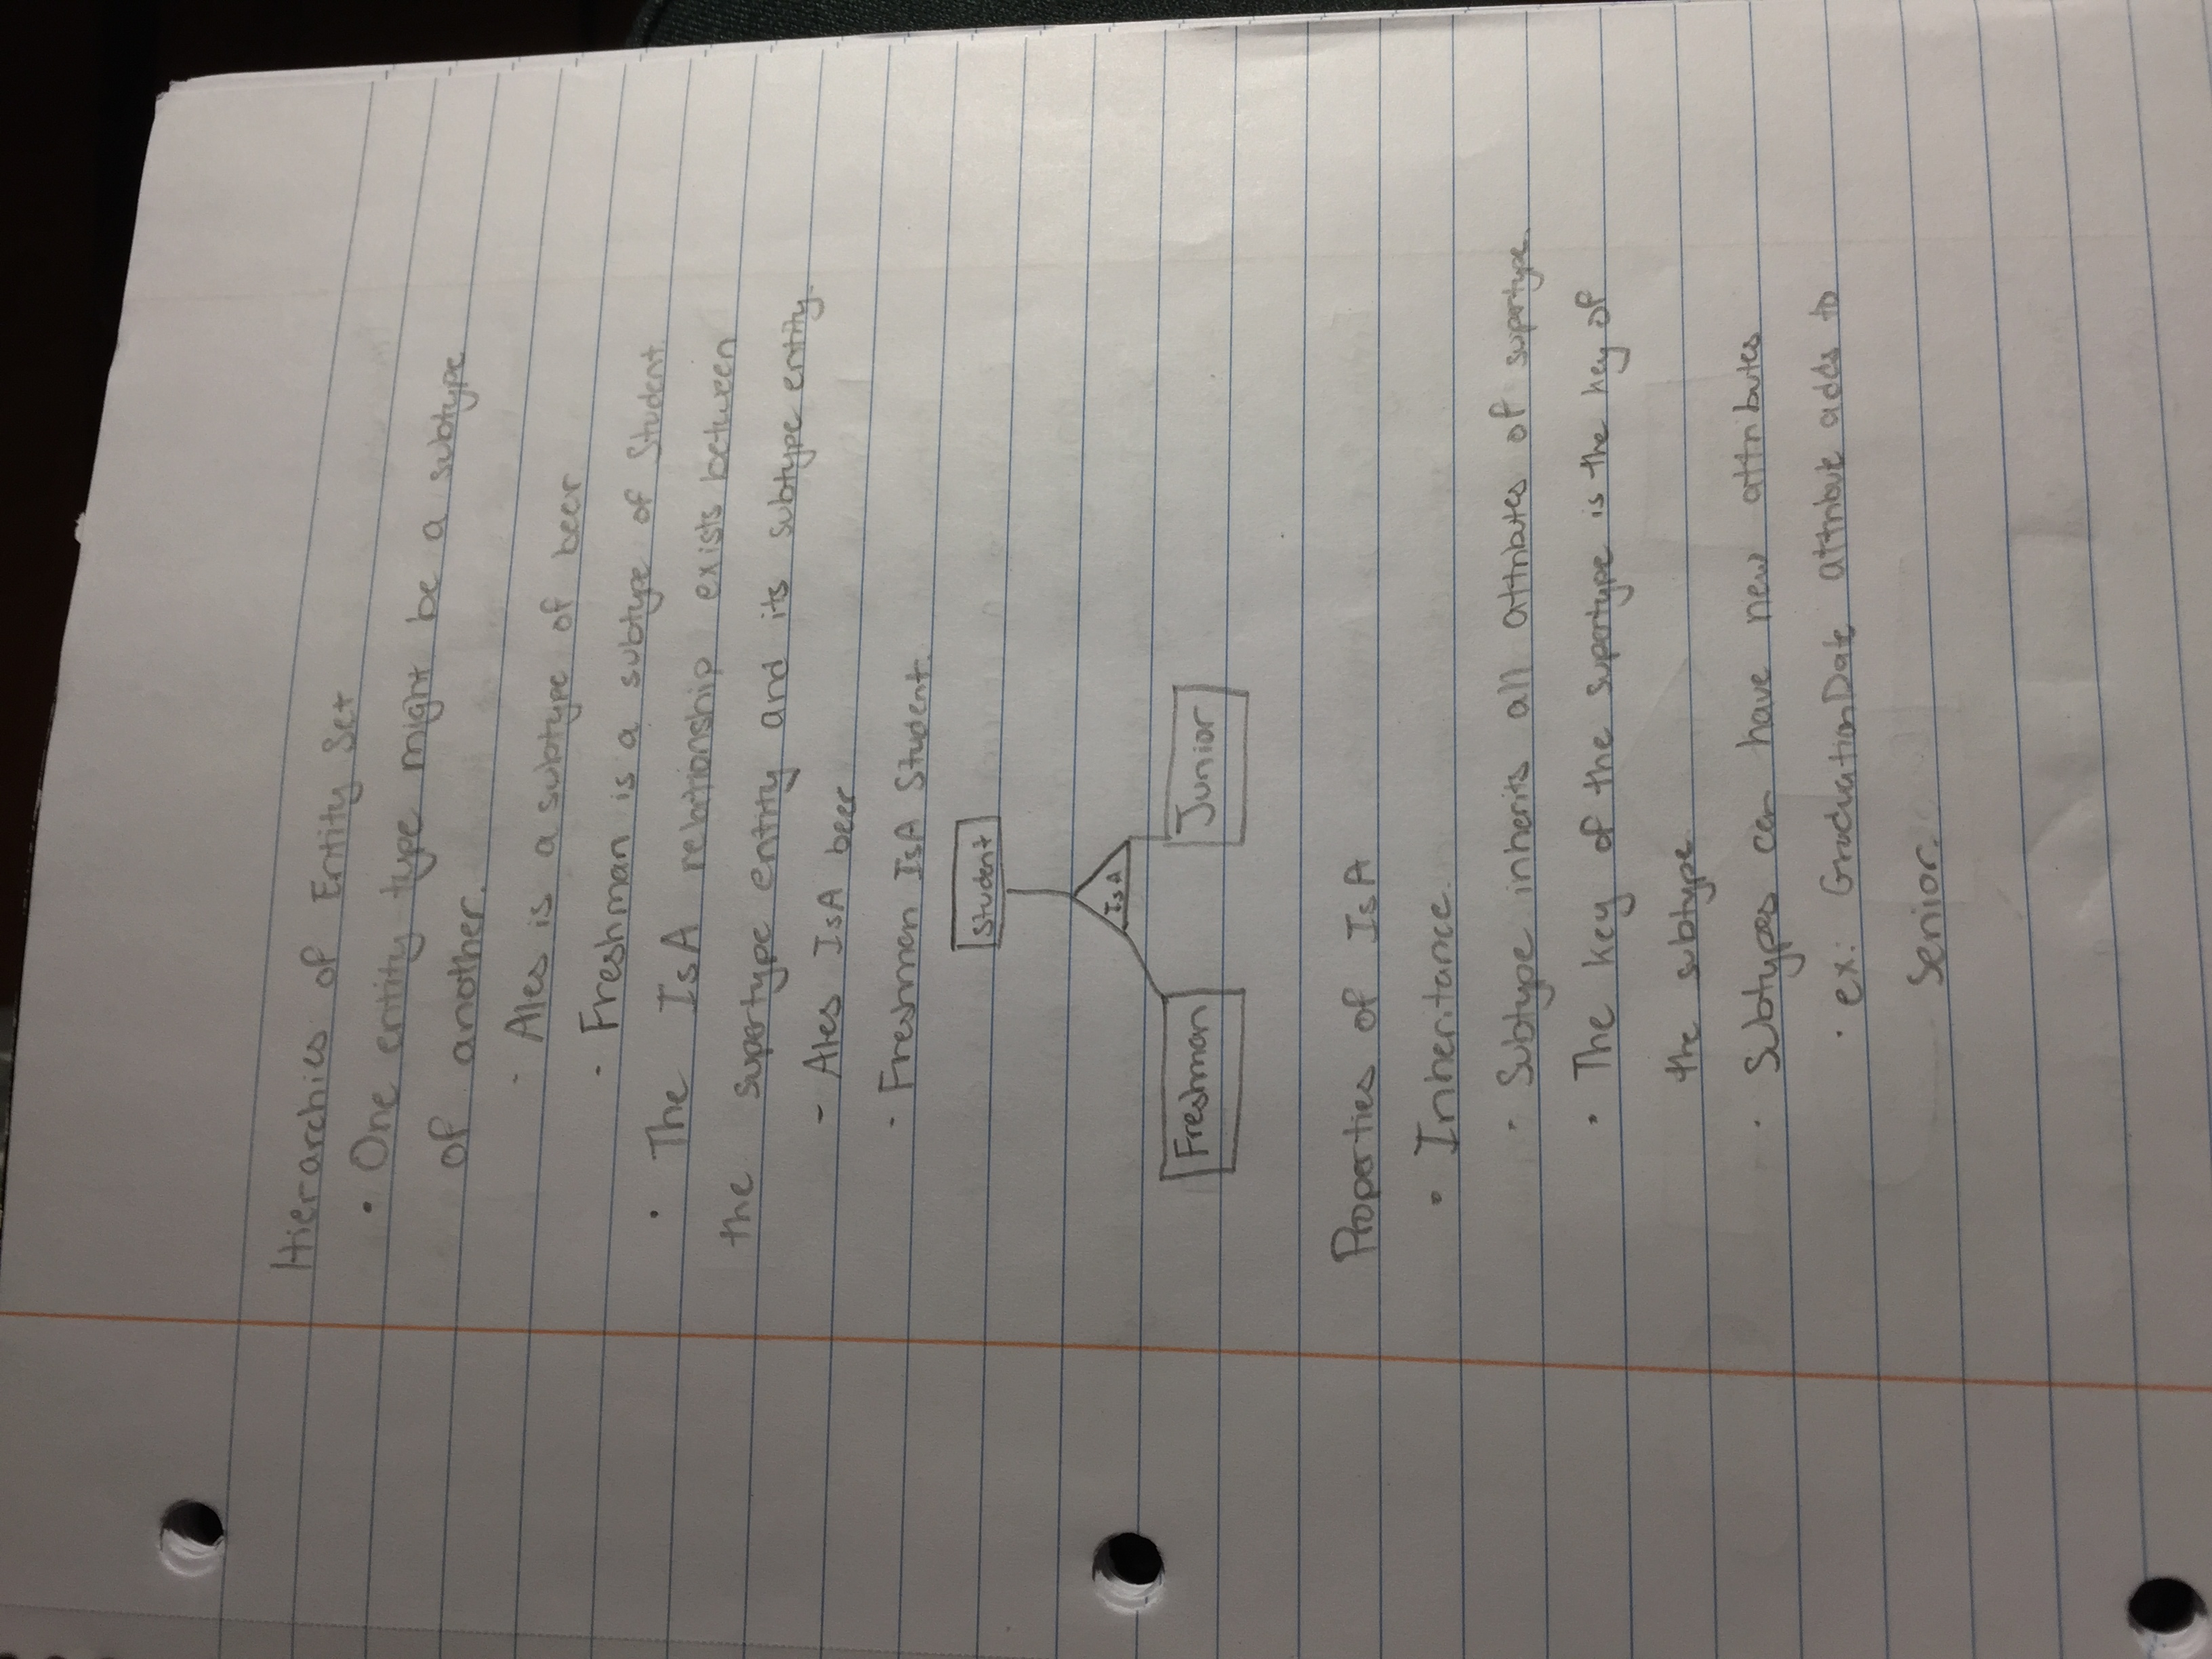 Hierarchies of Entity Set
• One entity type might be a subtype
of another.
- Ales is a subtype of beer
- Freshman is a subtype of Student.
• The IsA relationship exists between
the supertype entity and its subtype entity.
- Ales IsA beer
- Freshman IsA Student.
Student
IsA
Freshman Junior
Properties of IsA
• Inheritance.
• Subtype inherits all attributes of supertype.
• The key of the supertype is the key of
the subtype
• Subtypes can have new attributes
• ex: GraduationDate attribute adds to
Senior.